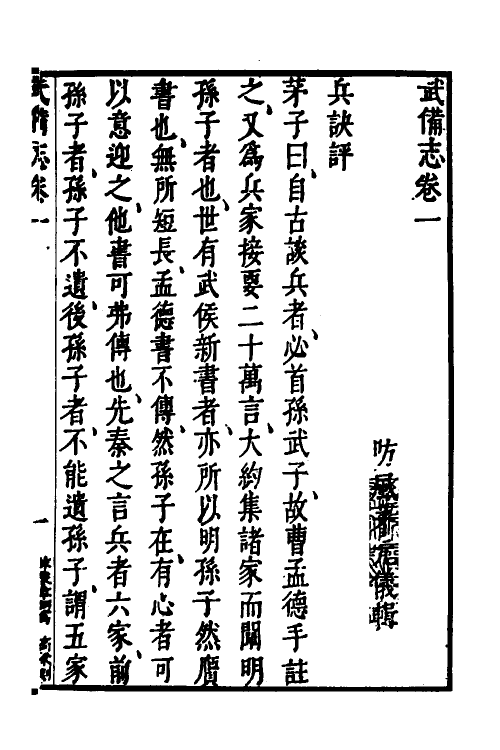 武備志卷一
防風茅元儀輯
兵訣評
茅子曰自古談兵者必首孫武子故曹孟德手註
之又為兵家接要二十萬言大約集諸家而闡明
孫子者也世有武侯新書者亦所以明孫子然贋
書也無所短長孟德書不傳然孫子在有心者可
以意迎之他書可弗傳也先秦之言兵者六家前
孫子者孫子不遺後孫子者不能遺孫子謂五家
武備志卷一
一